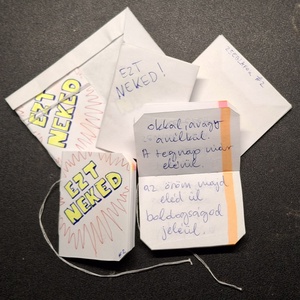 EZT
NEKED
EZT
NEKED!
#2
EZT
NEKED
#2
okkal, javagy
anélkül.
A tegnap már
elévül.
az öröm majd
eléd ül
boldogságod
jeléül.